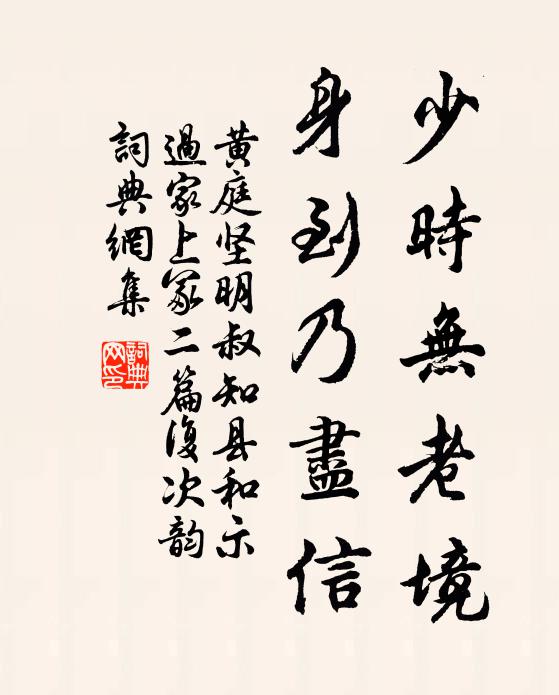 少時無老境
身到乃盡信
黄庭坚明叔知县和示
過家上冢二篇復次韵
詞典網集
詞典網印